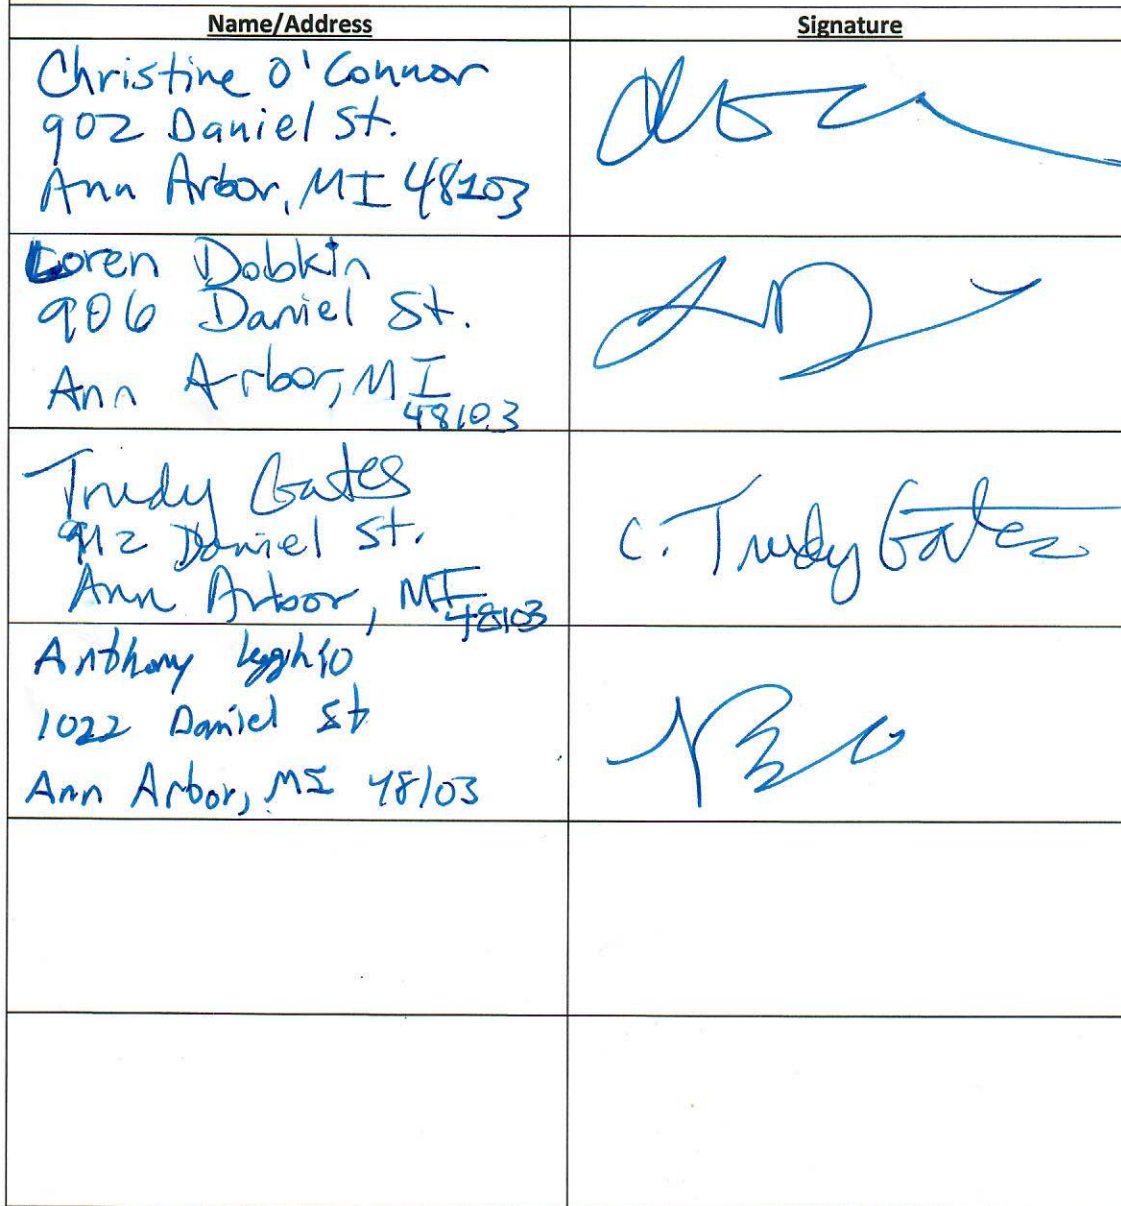 Name/Address
Signature
Christine O'Connor
902 Daniel St.
Ann Arbor, MI 48103
Loren Dobkin
906 Daniel St.
Ann Arbor, MI
48103
Trudy Gates
912 Daniel St.
Ann Arbor, MI
48103
C. Trudy Gates
Anthony
1022 Daniel St
Ann Arbor, MI 48103